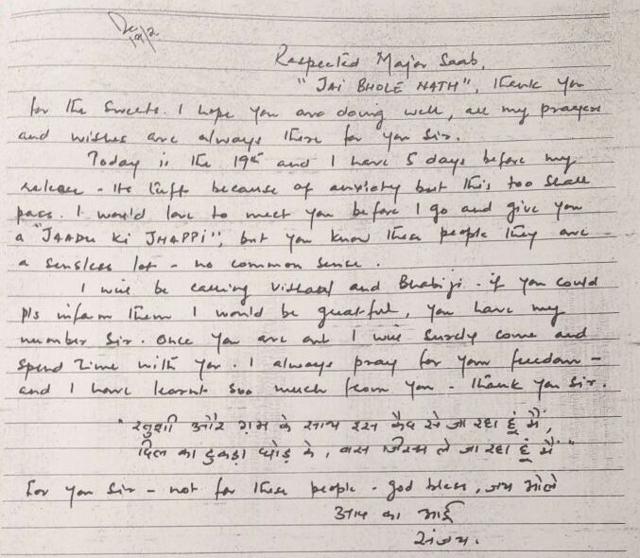 De
19/2
Respected Major Saab,
"JAI BHOLE NATH", thank you
for the sweets. I hope you are doing well, all my prayers
and wishes are always there for you Sir.
Today is the 19th and I have 5 days before my
release - Its tuff because of anxiety but this too shall
pass. I would love to meet you before I go and give you
a "JAADU KI JHAPPI", but you know these people they are
a sensless lot - no common sence.
I will be calling Vishaal and Bhabiji - if you could
pls inform them I would be greatful, you have my
number Sir. Once you are out I will surely come and
spend time with you. I always pray for your freedom -
and I have learnt soo much from you - Thank you Sir.
"खुशी और ग़म के साथ इस कैद से जा रहा हूं मैं,
दिल का टुकड़ा छोड़ के, बास जिस्म ले जा रहा हूं मैं"
For you Sir - not for these people - god bless, जय भोले
आप का भाई
संजय.